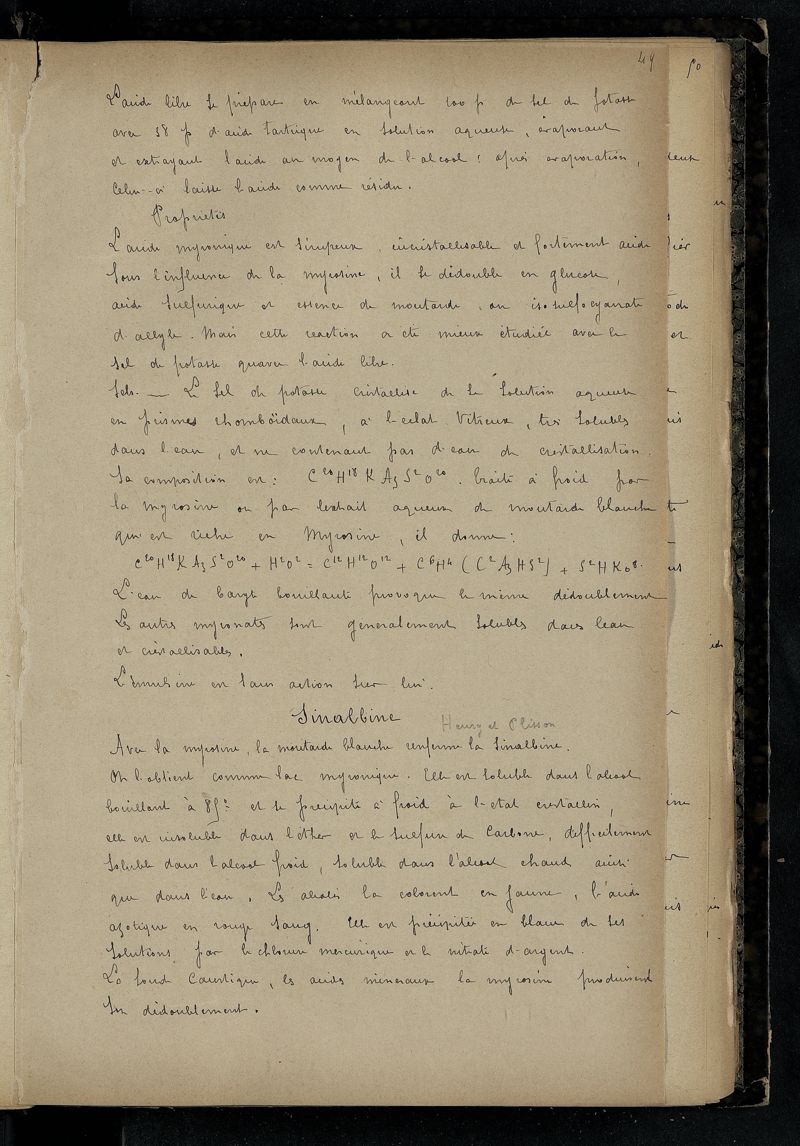 49
50
L'acide libre se prépare en mélangeant 100 p de sel de potasse
avec 38 p d'acide tartrique en solution aqueuse, évaporant
et extrayant l'acide au moyen de l'alcool ; après evaporation,
Celui-ci laisse l'acide comme résidu.
Proprietés
L'acide myronique est sirupeux, incristallisable et fortement acide
Sous l'influence de la myrosine, il se dédouble en glucose,
acide sulfurique et essence de moutarde, ou isosulfocyanate
d'allyle. Mais cette reaction a été mieux étudiée avec le
sel de potasse qu'avec l'acide libre.
Sels. — Le sel de potasse cristallise de sa solution aqueuse
en prismes rhomboïdaux, à l'eclat vitreux, très solubles
dans l'eau, et ne contenant pas d'eau de cristallisation.
Sa composition est : C²⁰H¹⁸KAzS²O²⁰. Traité à froid par
la myrosine ou par l'extrait aqueux de moutarde blanche
qui est riche en Myrosine, il donne :
C²⁰H¹⁸KAzS²O²⁰ + H²O² = C¹²H¹²O¹² + C⁶H⁴ (C²AzHS²) + S²HKO⁸.
L'eau de baryte bouillante provoque le même dédoublement
Les autres myronates sont generalement solubles dans l'eau
et cristallisables.
L'émulsine est sans action sur lui.
Sinalbine Henry et Plisson
Avec la myrosine, la moutarde blanche renferme la Sinalbine.
On l'obtient comme l'ac myronique. Elle est soluble dans l'alcool
bouillant à 85° et se precipite à froid à l'etat cristallin,
elle est insoluble dans l'éther et le sulfure de Carbone, difficilement
soluble dans l'alcool froid, soluble dans l'alcool chaud ainsi
que dans l'eau. Les alcalis la colorent en jaune, l'acide
azotique en rouge sang. Elle est précipitée en blanc de ses
solutions par le chlorure mercurique et le nitrate d'argent.
La soude Caustique, les acids mineraux la myrosine produisent
son dédoublement.